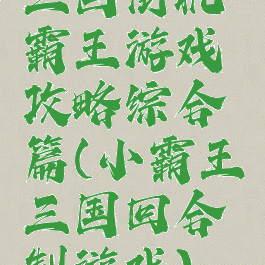 三国街机
霸王游戏
攻略综合
篇(小霸王
三国回合
制游戏)